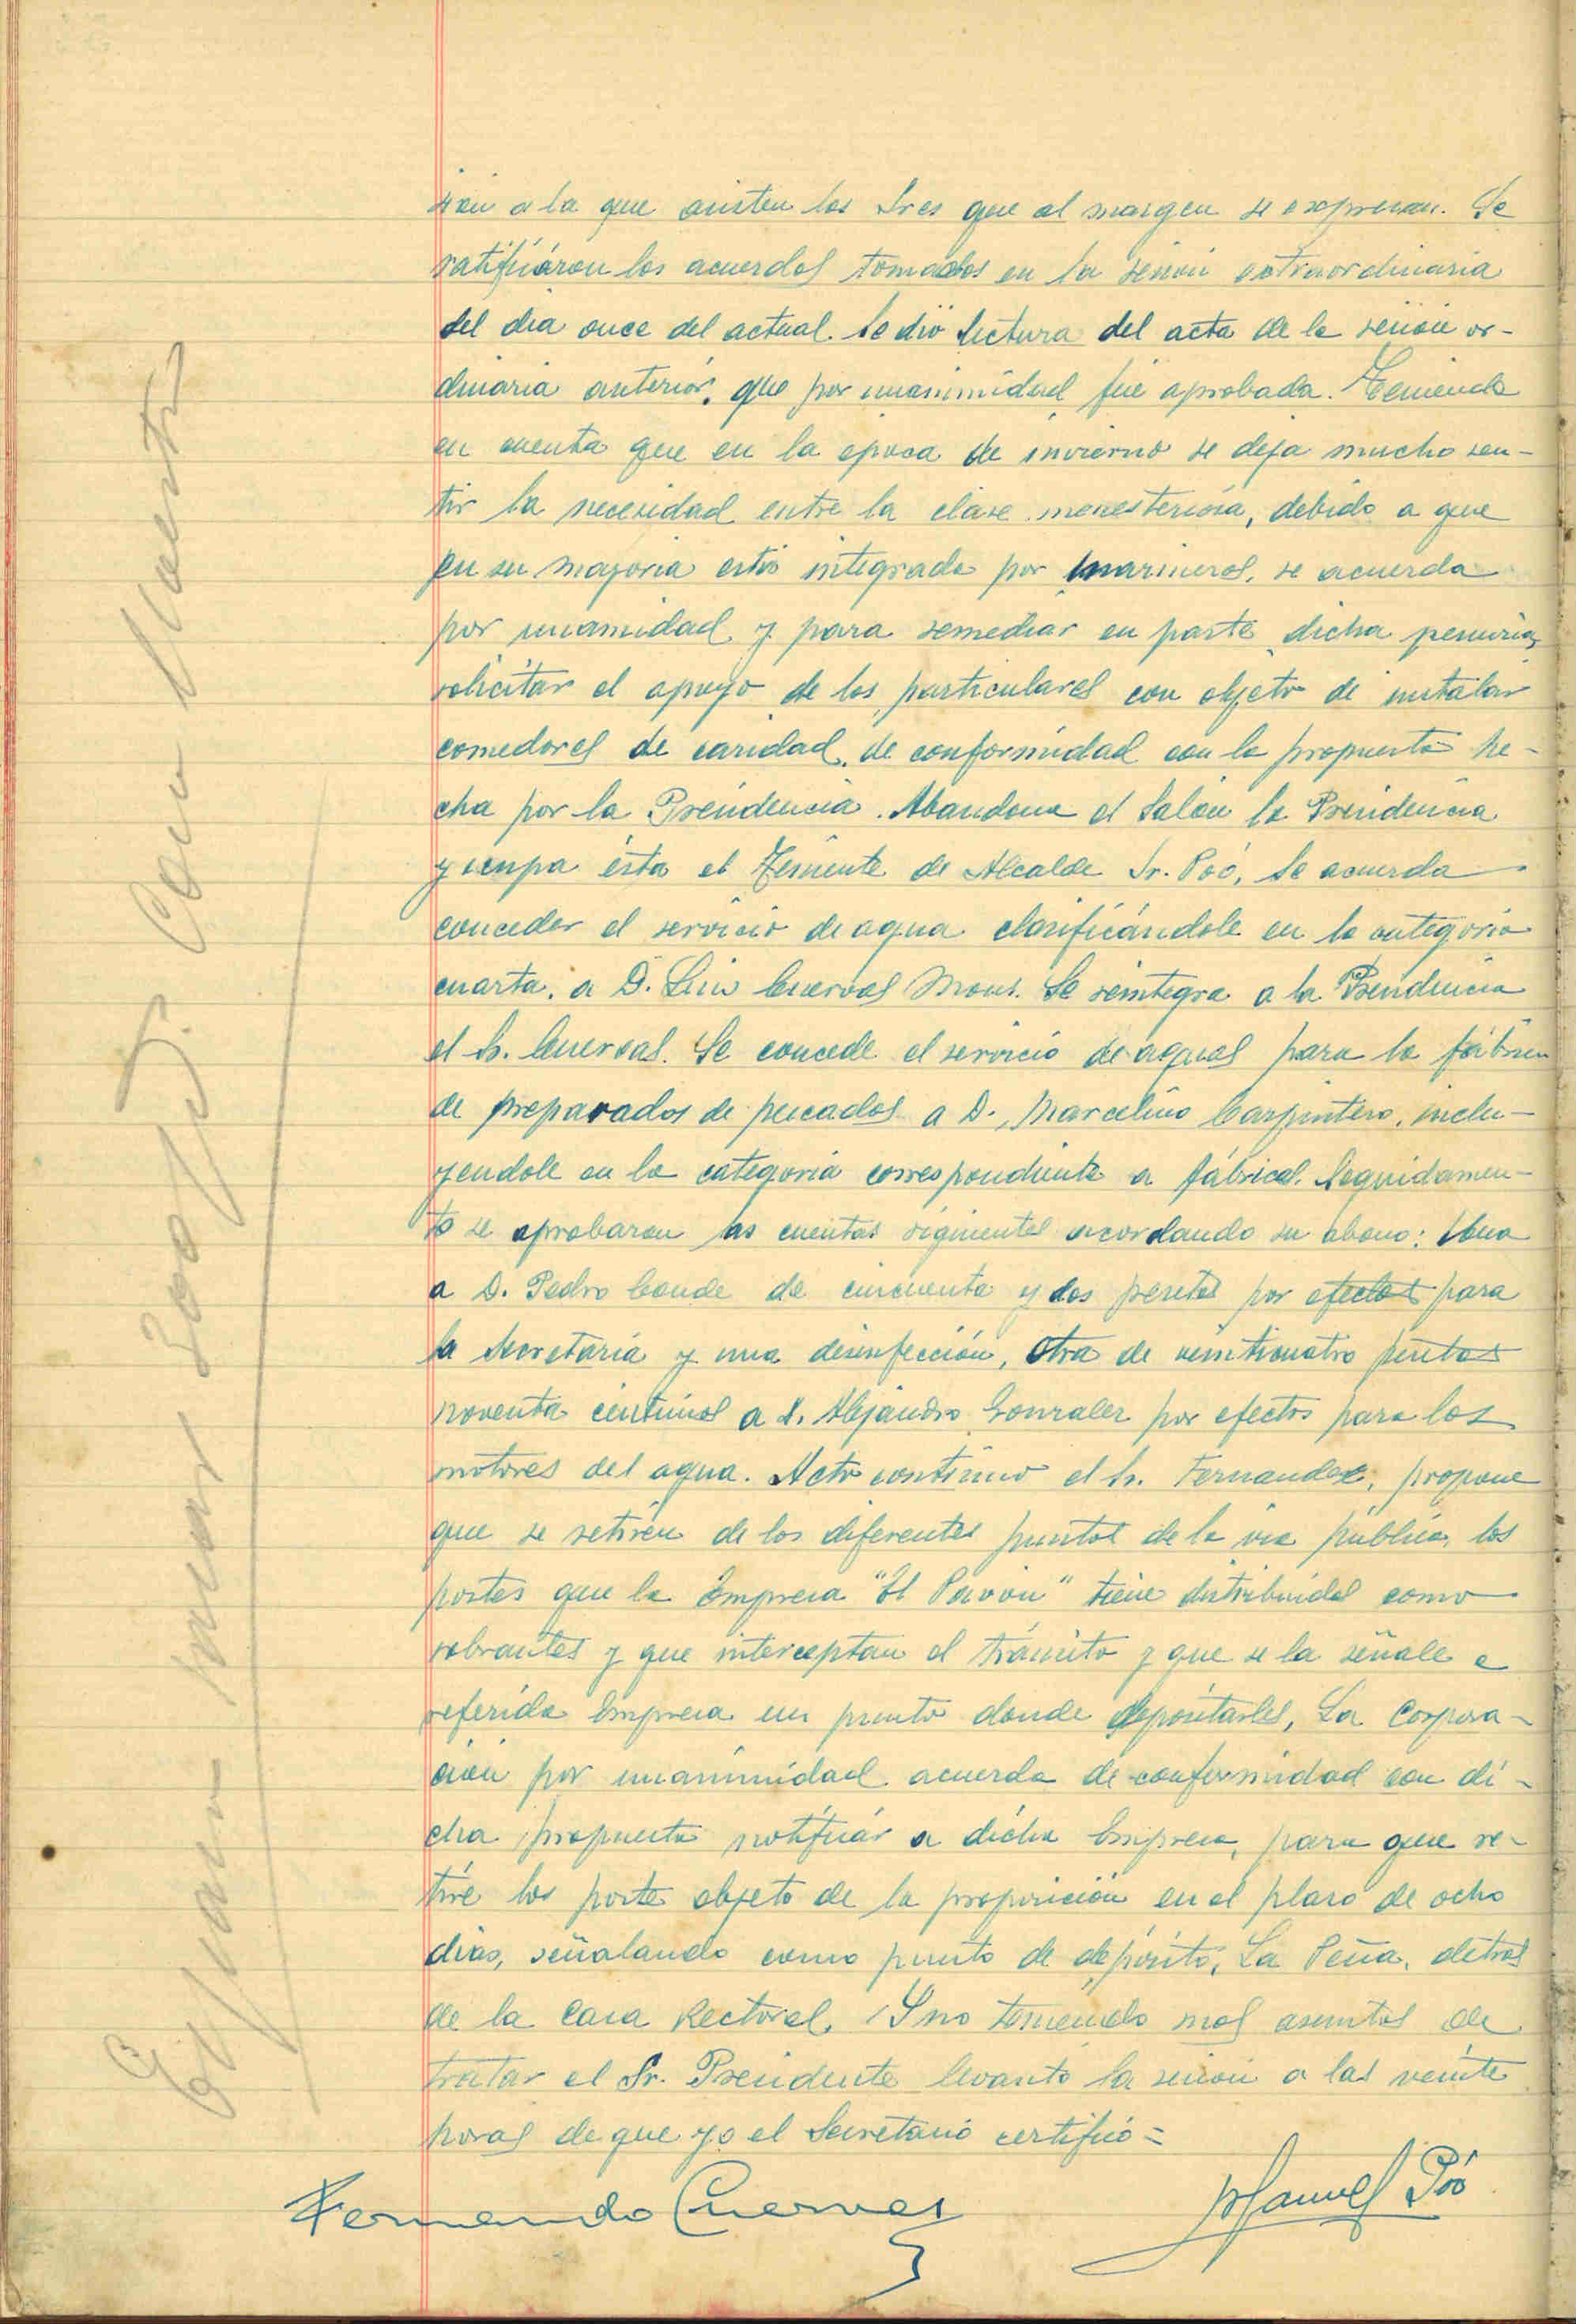 sion a la que asisten los Sres que al margen se expresan. Se
ratificáron los acuerdos tomados en la sesión extraordinaria
del dia once del actual. Se dió lectura del acta de la sesión or-
dinaria anterior, que por unanimidad fué aprobada. Teniendo
en cuenta que en la epoca de invierno se deja mucho sen-
tir la necesidad entre la clase menesterosa, debido a que
en su mayoria está integrada por marineros, se acuerda
por unamidad y para remediar en parte dicha penuria,
solicitar el apoyo de los particulares con objeto de instalar
comedores de caridad, de conformidad con la propuesta he-
cha por la Presidencia. Abandona el Salón la Presidencia
y ocupa ésta el Teniente de Alcalde Sr. Poó, Se acuerda
conceder el servicio de agua clasificándole en la categoria
cuarta, a D. Luis Cuervas Mons. Se reintegra a la Presidencia
el Sr. Cuervas. Se concede el servicio de aguas para la fábrica
de preparados de pescados a D. Marcelino Carpintero, inclu-
yendole en la categoria correspondiente a fábricas. Seguidamen-
te se aprobaron las cuentas siguientes acordando su abono: Una
a D. Pedro Conde de cincuenta y dos pesetas por efectos para
la Secretaria y una desinfección, Otra de veinticuatro pesetas
noventa centimos a D. Alejandro Gonzalez por efectos para los
motores del agua. Acto continuo el Sr. Fernandez, propone
que se retiren de los diferentes puntos de la via pública, los
postes que la Empresa "El Pavón" tiene distribuidos como
sobrantes y que interceptan el tránsito y que se la señale a
referida Empresa un punto donde depositarles, La Corpora-
ción por unanimidad acuerda de conformidad con di-
cha propuesta notificár a dicha Empresa, para que re-
tire los poste objeto de la proposición en el plazo de ocho
dias, señalando como punto de depósito, La Peña, detras
de la Casa Rectoral. Y no teniendo mas asuntos de
tratar el Sr. Presidente levantó la sesión a las veinte
horas de que yo el Secretario certifico=
Fernando Cuervas
Manuel Poó